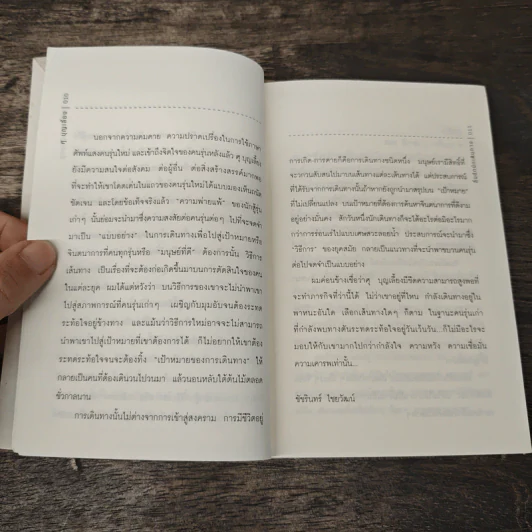 นอกจากความคมคาย ความปราดเปรื่องในการใช้ภาษา
ศัพท์แสงคนรุ่นใหม่ และเข้าถึงจิตใจของคนรุ่นหลังแล้ว คุ บุญเลี้ยง
ยังมีความสนใจต่อสังคม ต่อผู้อื่น ต่อสิ่งสร้างสรรค์มากพอ
ที่จะทำให้เขาโดดเด่นในแถวของคนรุ่นใหม่ได้แบบมองเห็นถนัด
ชัดเจน และโดยข้อเท็จจริงแล้ว "ความพ่ายแพ้" ของนักสู้รุ่น
เก่าๆ นั้นย่อมจะนำมาซึ่งความสงสัยต่อคนรุ่นต่อๆ ไปที่จะจดจำ
มาเป็น "แบบอย่าง" ในการเดินทางเพื่อไปสู่เป้าหมายหรือ
จินตนาการที่คนทุกรุ่นหรือ "มนุษย์ที่ดี" ต้องการนั้น วิธีการ
เดินทาง เป็นเรื่องที่จะต้องก่อเกิดขึ้นมาบนการตัดสินใจของคน
ในแต่ละยุค ผมได้แต่หวังว่า บนวิธีการของเขาจะไม่นำพาเขา
ไปสู่สภาพการณ์ที่คนรุ่นเก่าๆ เผชิญกับมุมอับจนต้องระทด
ระท้อใจอยู่ข้างทาง และแม้นว่าวิธีการใหม่อาจจะไม่สามารถ
นำพาเขาไปสู่เป้าหมายที่เขาต้องการได้ ก็ไม่อยากให้เขาต้อง
ระทดระท้อใจจนจะต้องทิ้ง "เป้าหมายของการเดินทาง" ให้
กลายเป็นคนที่ต้องเดินวนไปวนมา แล้วนอนหลับใต้ต้นไม้ตลอด
ชั่วกาลนาน
การเดินทางนั้นไม่ต่างจากการเข้าสู่สงคราม การมีชีวิตอยู่
การเกิด-การตายก็คือการเดินทางชนิดหนึ่ง มนุษย์เรามีสิทธิ์ที่
จะวกวนสับสนไปมาบนเส้นทางแต่ละเส้นทางได้ แต่ประสบการณ์
ที่ได้รับจากการเดินทางนั้นถ้าหากยังถูกนำมาสรุปบน "เป้าหมาย"
ที่ไม่เปลี่ยนแปลง บนเป้าหมายที่ต้องการค้นหาจินตนาการที่ดีงาม
อยู่อย่างมั่นคง สักวันหนึ่งนักเดินทางก็จะได้อะไรต่อมิอะไรมาก
กว่าการร่อนเร่ไปแบบเศษสวะลอยน้ำ ประสบการณ์จะนำมาซึ่ง
"วิธีการ" ของยุคสมัย กลายเป็นแนวทางที่จะนำพาขบวนคนรุ่น
ต่อไปจดจำเป็นแบบอย่าง
ผมค่อนข้างเชื่อว่าคุ บุญเลี้ยงมีขีดความสามารถสูงพอที่
จะทำภารกิจที่ว่านี้ได้ ไม่ว่าเขาอยู่ที่ไหน กำลังเดินทางอยู่ใน
พาหนะอันใด เลือกเส้นทางใดๆ ก็ตาม ในฐานะคนรุ่นเก่า
ที่กำลังพบทางตันระทดระท้อใจอยู่วันเว้นวัน ก็ไม่มีอะไรจะ
มอบให้กับเขามากไปกว่ากำลังใจ ความหวัง ความเชื่อมั่น
ความเคารพเท่านั้น...
ชัชรินทร์ ไชยวัฒน์